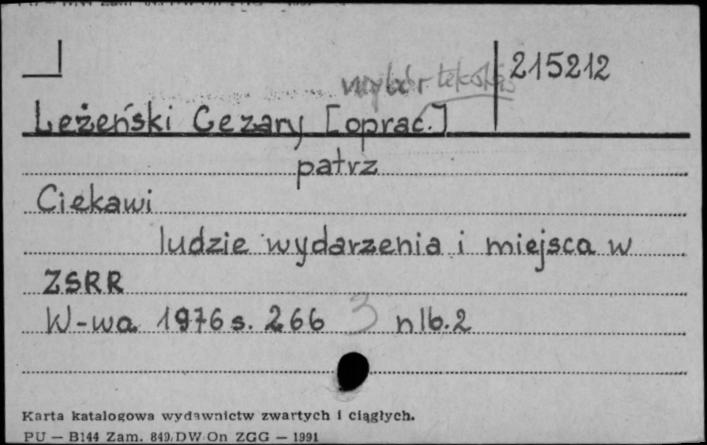 215212
wybór tekstów
Leżeński Cezary [oprac.]
patrz
Ciekawi
ludzie wydarzenia i miejsca w
ZSRR
W-wa 1976 s. 266 3 nlb. 2
Karta katalogowa wydawnictw zwartych i ciągłych.
PU — B144 Zam. 849/DW/On ZGG — 1991